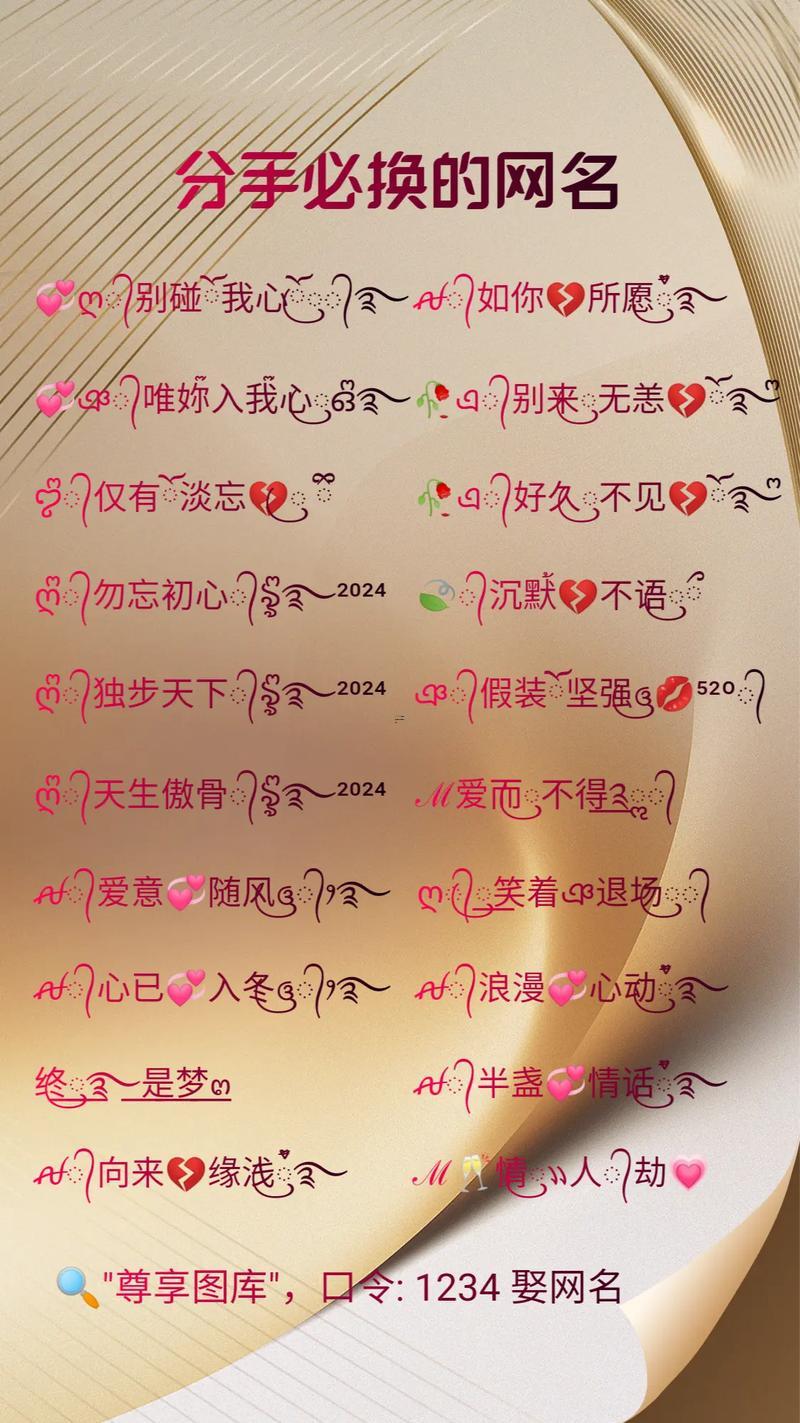 分手必换的网名
💞ღ᭄别碰ོ我心ོ࿐ ꪝ᭄如你💔所愿࿐
💞ঞ᭄唯妳入我心ཉ࿐ 🥀এ᭄别来ꦿ无恙💔ོ࿐
ღ᭄仅有ོ淡忘💔ꦿ 🥀এ᭄好久ꦿ不见💔ོ࿐
ღ᭄勿忘初心᭄ꦿ࿐²⁰²⁴ 🍃᭄沉默💔不语ꦿ
ღ᭄独步天下᭄ꦿ࿐²⁰²⁴ ঞ᭄假装ོ坚强ꦿ💋⁵²⁰᭄
ღ᭄天生傲骨᭄ꦿ࿐²⁰²⁴ ℳ爱而ꦿ不得᭄
ꪝ᭄爱意💞随风ꦿ᭄࿐ ღ᭄笑着ঞ退场ꦿ᭄
ꪝ᭄心已💞入冬ꦿ᭄࿐ ꪝ᭄浪漫💞心动࿐
终ꦿ࿐是梦ო ꪝ᭄半盏💞情话࿐
ꪝ᭄向来💔缘浅࿐ ℳ🥂情ꦿ人᭄劫💗
🔍"尊享图库"，口令: 1234 娶网名